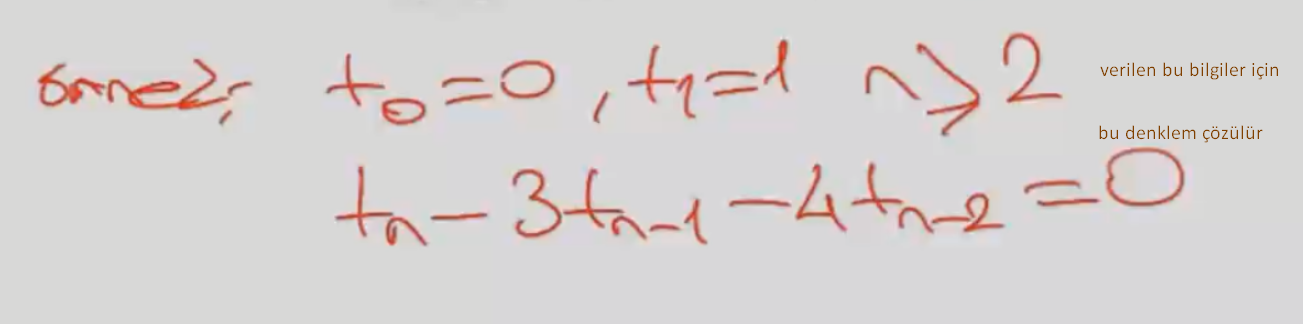 örnek; t₀ = 0, t₁ = 1 n ⩾ 2 verilen bu bilgiler için
bu denklem çözülür
tₙ - 3tₙ₋₁ - 4tₙ₋₂ = 0